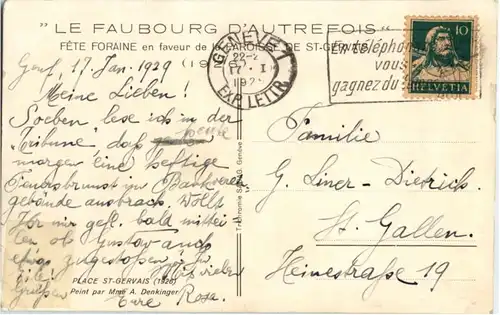 "LE FAUBOURG D'AUTREFOIS"
FÊTE FORAINE en faveur de DE ST-GERVAIS
Genf, 17. Jan. 1929
Meine Lieben!
Soeben lese ich in der
"Tribune" daß heute
morgen eine heftige
Feuersbrunst im Bankverein
gebäude ausbrach. Wollt
Ihr mir gefl. bald mittei-
len, ob Gustav auch
etwas zugestoßen
Eile! Mit vielen
Grüßen Eure Rosa.
PLACE ST-GERVAIS (1926)
Peint par Mme A. Denkinger
GENÈVE 1
EXP. LETTR.
En téléphonant
vous
gagnez du
10
HELVETIA
Familie
G. Liner-Dietrich.
St. Gallen.
Heinestraße 19